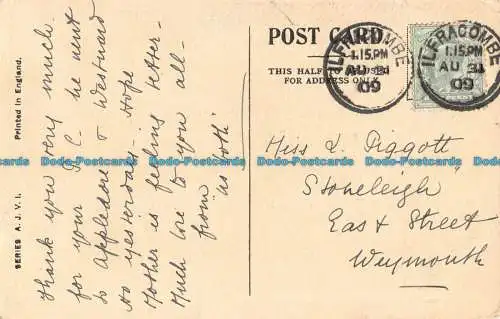 POST CARD
THIS HALF TO BE USED
FOR ADDRESS ONLY.
ILFRACOMBE
1.15.PM
AU 31
09
ILFRACOMBE
1.15.PM
AU 31
09
Printed in England.
SERIES A.J.V.I.
Thank you very much
for your P.C. he went
to Appledore & Westward
Ho yesterday. Hope
Mother is feeling better
Much love to you all
from
Miss L Piggott
"Stoneleigh"
East Street
Weymouth
Dodo-Postcards
Dodo-Postcards
Dodo-Postcards
Dodo-Postcards
Dodo-Postcards